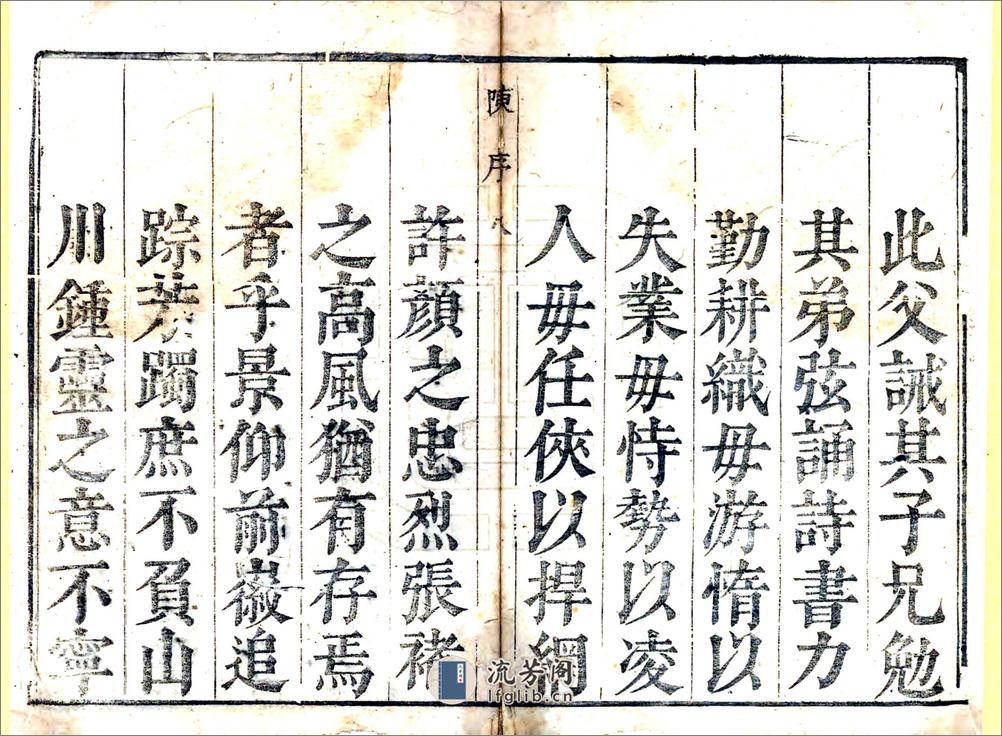 此父誡其子兄勉
其弟弦誦詩書力
勤耕織毋游惰以
失業毋恃勢以凌
人毋任俠以捍網
陳序 八
許顏之忠烈張褚
之高風猶有存焉
者乎景仰前徽追
踪芳躅庶不負山
川鍾靈之意不寧
流芳阁
lfglib.cn